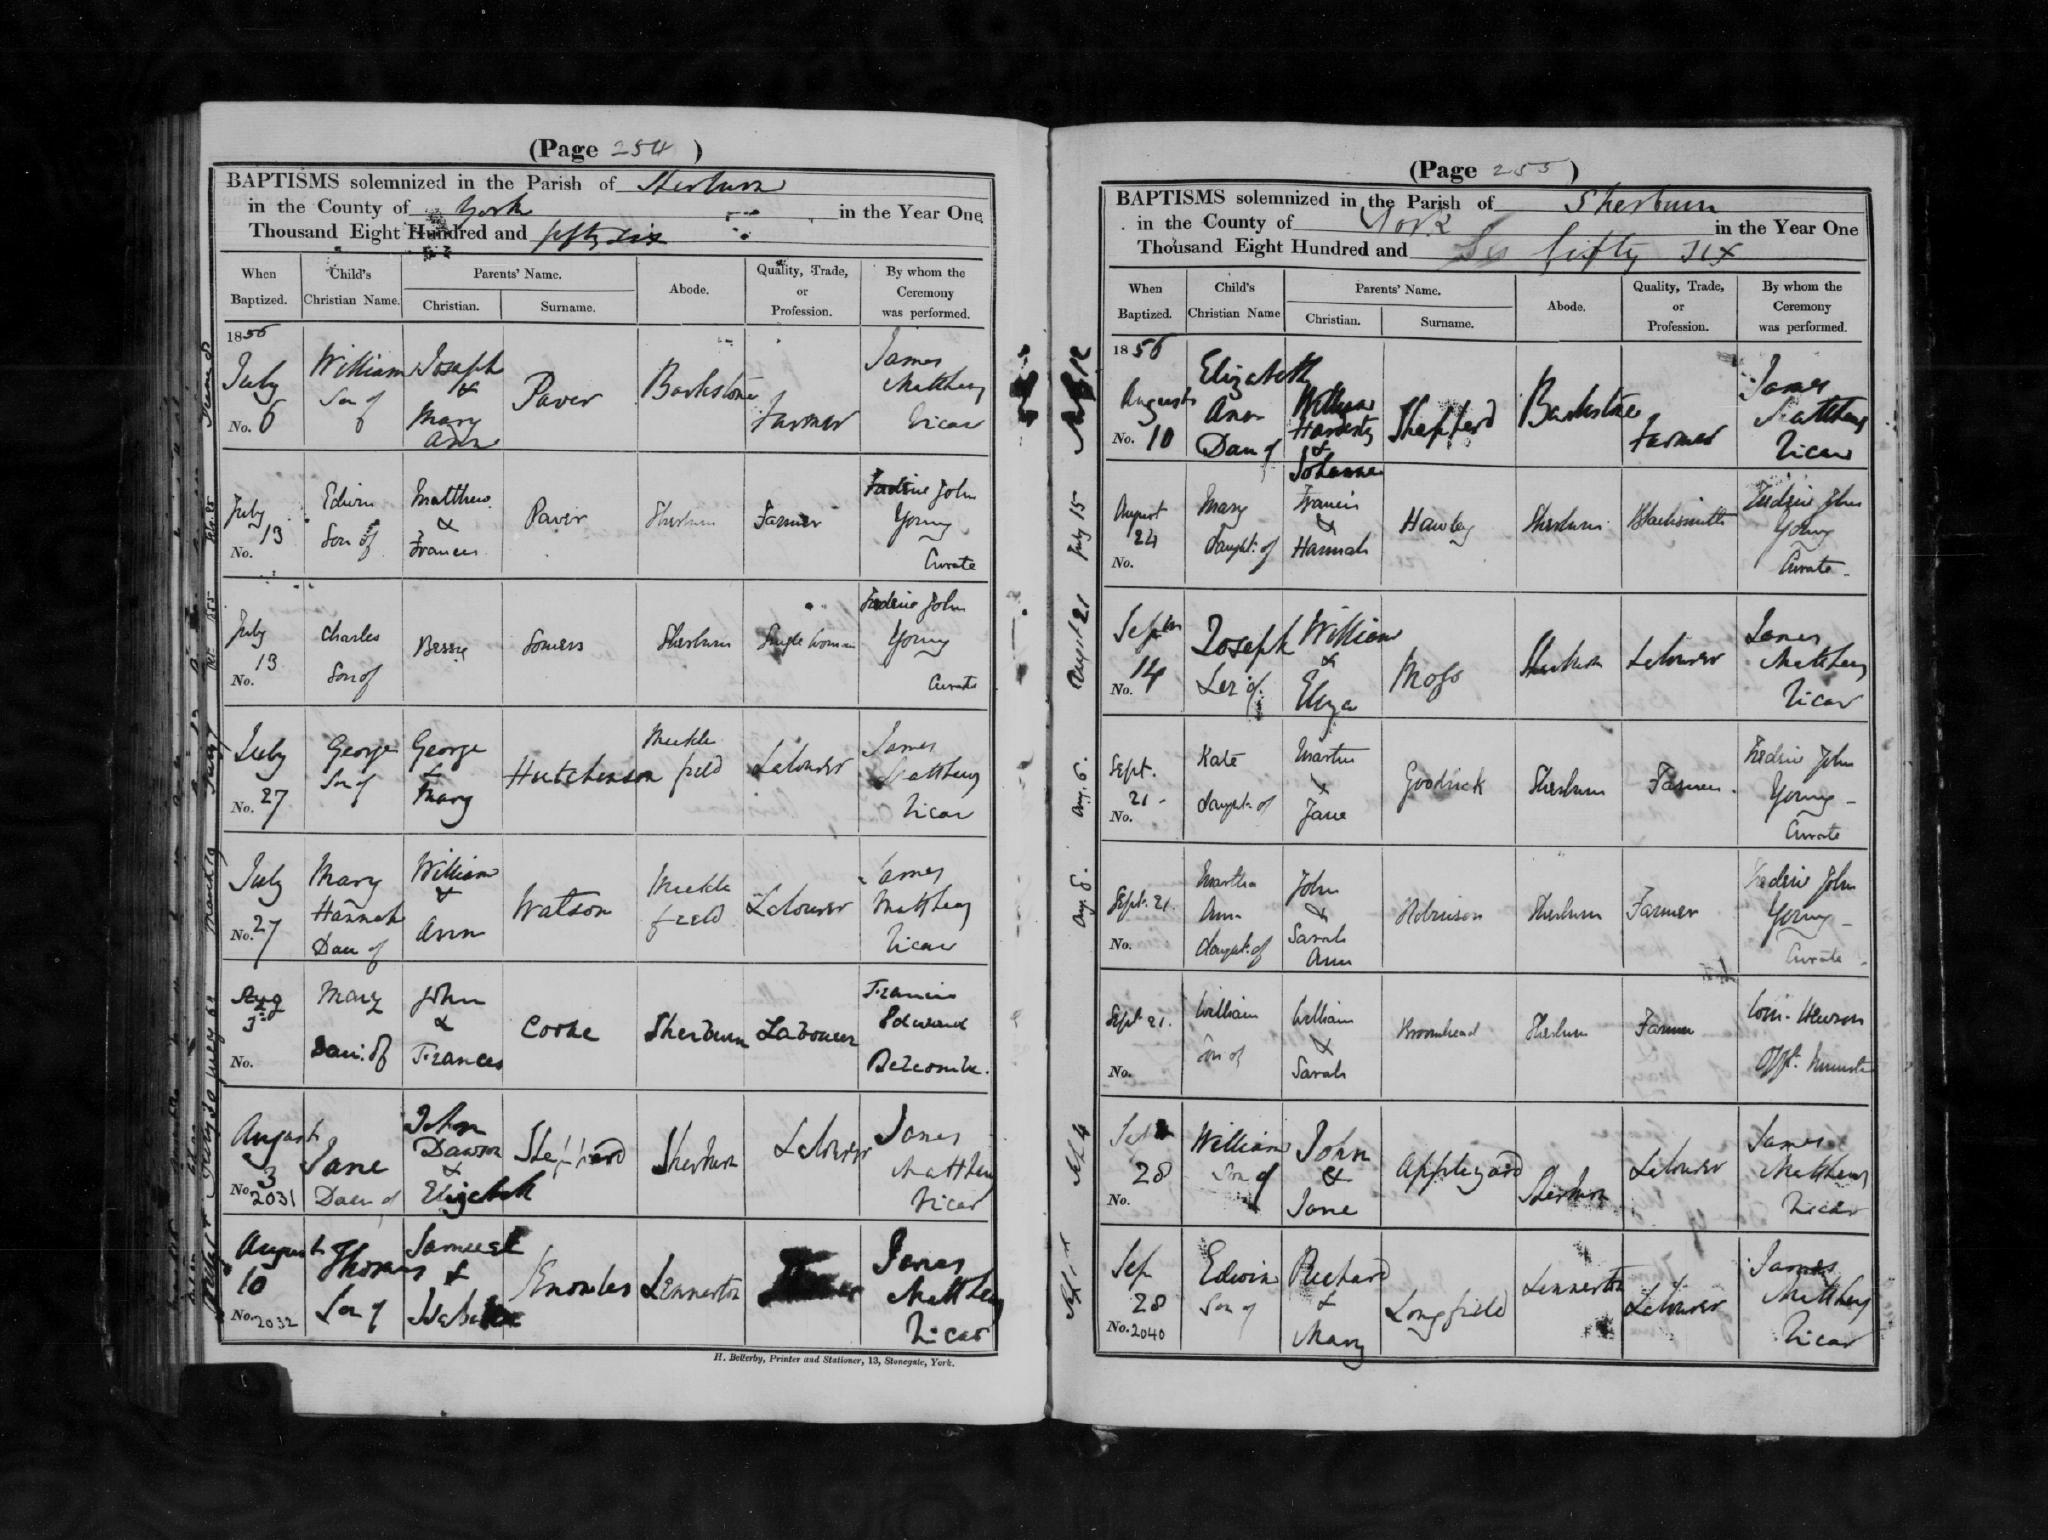 (Page 254 )
BAPTISMS solemnized in the Parish of Sherburn
in the County of York in the Year One
Thousand Eight Hundred and fifty six
When Baptized.
Child's Christian Name.
Parents' Name.
Christian.
Surname.
Abode.
Quality, Trade, or Profession.
By whom the Ceremony was performed.
1856
July No. 6
William Son of
Joseph & Mary Ann
Paver
Barkstone
Farmer
James Matthews Vicar
July 13 No.
Edwin Son of
Matthew & Frances
Paver
Sherburn
Farmer
Fredric John Young Curate
July 13 No.
Charles Son of
Bessy
Somers
Sherburn
Single Woman
Fredric John Young Curate
July No. 27
George Son of
George & Mary
Hutchinson
Mickle field
Labourer
James Matthews Vicar
July No. 27
Mary Hannah Dau of
William & Ann
Watson
Mickle field
Labourer
James Matthews Vicar
Aug 3 No.
Mary Dau: of
John & Frances
Cooke
Sherburn
Labourer
Francis Edward
August 3 No. 2031
Jane Dau of
John Dawson & Elizabeth
Sheppard
Sherburn
Labourer
James Matthews Vicar
August 10 No. 2032
Thomas Son of
Samuel & Isabella
Knowles
Lennerton
James Matthews Vicar
H. Bellerby, Printer and Stationer, 13, Stonegate, York.
(Page 255 )
BAPTISMS solemnized in the Parish of Sherburn
in the County of York in the Year One
Thousand Eight Hundred and fifty six
When Baptized.
Child's Christian Name
Parents' Name.
Christian.
Surname.
Abode.
Quality, Trade, or Profession.
By whom the Ceremony was performed.
1856
August No. 10
Elizabeth Ann Dau of
William Hardesty & Johanna
Shepherd
Barkstone
Farmer
James Matthews Vicar
July 15
August 24 No.
Mary Daught: of
Francis & Hannah
Hawley
Sherburn
Blacksmith
Fredric John Young Curate
August 21
Septm No. 14
Joseph Son of
William & Eliza
Moss
Sherburn
Labourer
James Matthews Vicar
Aug. 6.
Sept. 21 No.
Kate Daught: of
Martin & Jane
Goodrick
Sherburn
Farmer
Fredric John Young Curate
Aug. 8.
Sept. 21. No.
Martha Ann daught: of
John & Sarah Ann
Robinson
Sherburn
Farmer
Fredric John Young Curate
Sept. 21. No.
William Son of
William & Sarah
Broomhead
Sherburn
Farmer
Wm. Hewson Offg. Minister
Sep 4
Sep 28 No.
William Son of
John & Jane
Appleyard
Sherburn
Labourer
James Matthews Vicar
Sep 28 No. 2040
Edwin Son of
Richard & Mary
Longfield
Lennerton
Labourer
James Matthews Vicar